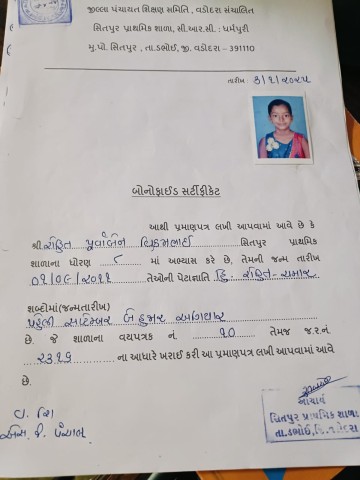 જીલ્લા પંચાયત શિક્ષણ સમિતિ , વડોદરા સંચાલિત
સિતપુર પ્રાથમિક શાળા, સી.આર.સી. : ધર્મપુરી
મુ.પો. સિતપુર , તા.ડભોઈ, જી. વડોદરા – 391110
તારીખ: ૩/૧/૨૦૨૫
બોનોફાઈડ સર્ટીફીકેટ
આથી પ્રમાણપત્ર લખી આપવામાં આવે છે કે
શ્રી રોહિત પૂર્વાબેન વિક્રમભાઈ સિતપુર પ્રાથમિક
શાળાના ધોરણ ૮ માં અભ્યાસ કરે છે, તેમની જન્મ તારીખ
૦૧/૦૯/૨૦૧૧ તેઓની પેટાજ્ઞાતિ હિ. રોહિત-ચમાર.
શબ્દોમાં(જન્મતારીખ)
પહેલી સપ્ટેમ્બર બે હજાર અગિયાર
છે. જે શાળાના વયપત્રક નં ૧૦ તેમજ જ.ર.નં.
૨૩૧૬ ના આધારે ખરાઈ કરી આ પ્રમાણપત્ર લખી આપવામાં આવે
છે.
વ. શિ
આચાર્ય
સિતપુર પ્રાથમિક શાળા
તા.ડભોઈ, જિ. વડોદરા